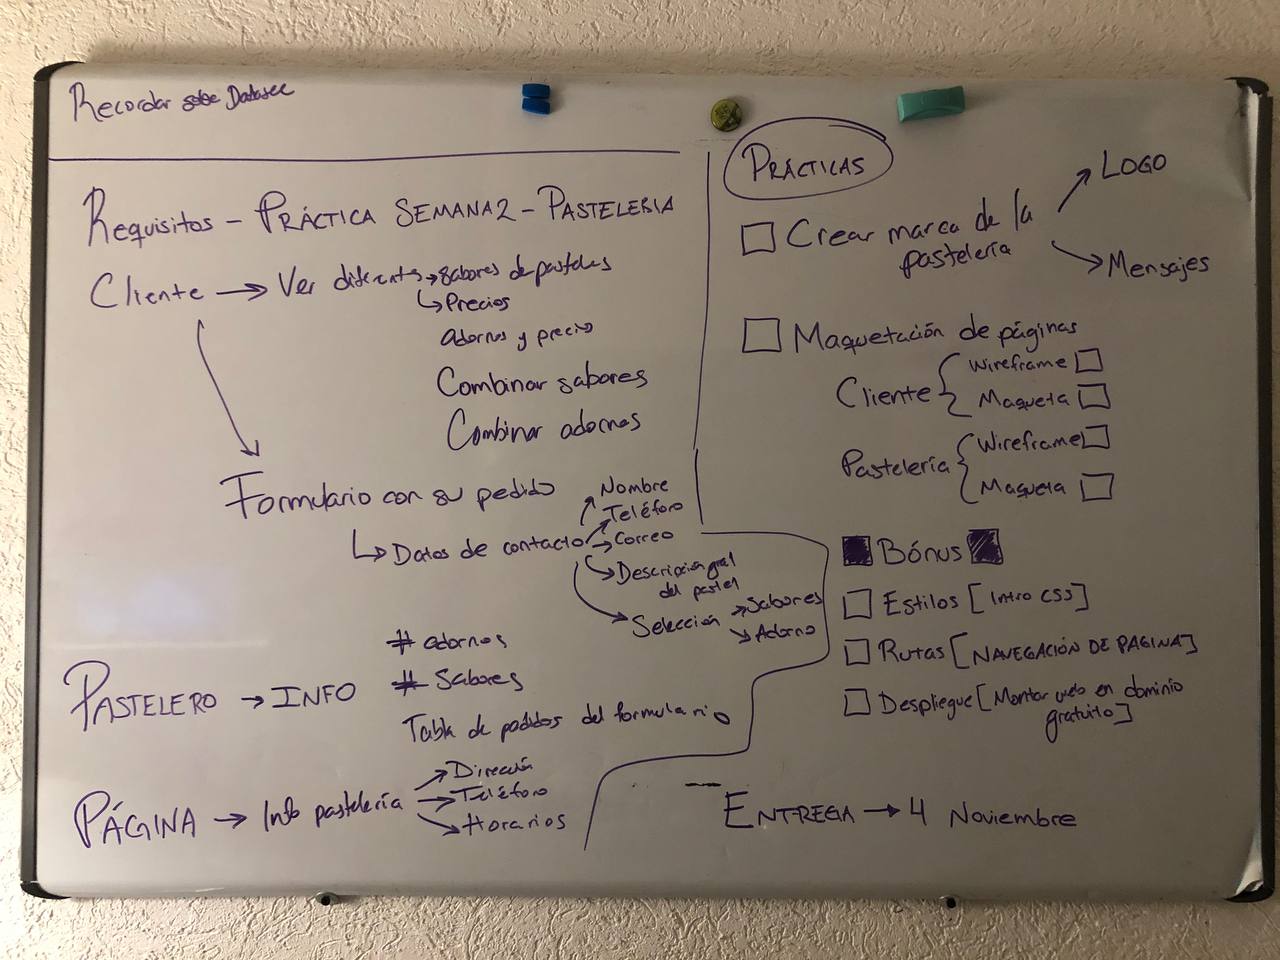 Recordar sobre
Requisitos - PRÁCTICA SEMANA 2 - PASTELERIA
Cliente → Ver diferentes → sabores de pasteles
↳ Precios
Adornos y precio
Combinar sabores
Combinar adornos
Formulario con su pedido
↳ Datos de contacto → Nombre
→ Teléfono
→ Correo
→ Descripción gral
del pastel
→ Selección → Sabores
→ Adorno
# adornos
PASTELERO → INFO # Sabores
Tabla de pedidos del formulario
PÁGINA → Info pastelería → Dirección
→ Teléfono
→ Horarios
PRÁCTICAS
□ Crear marca de la → LOGO
pastelería → Mensajes
□ Maquetación de páginas
Cliente { Wireframe □
Maqueta □
Pastelería { Wireframe □
Maqueta □
■ Bónus ■
□ Estilos [Intro CSS]
□ Rutas [NAVEGACIÓN DE PAGINA]
□ Despliegue [Montar web en dominio
gratuito]
ENTREGA → 4 Noviembre